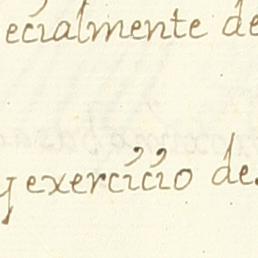 ecialmente de
y exercicio de